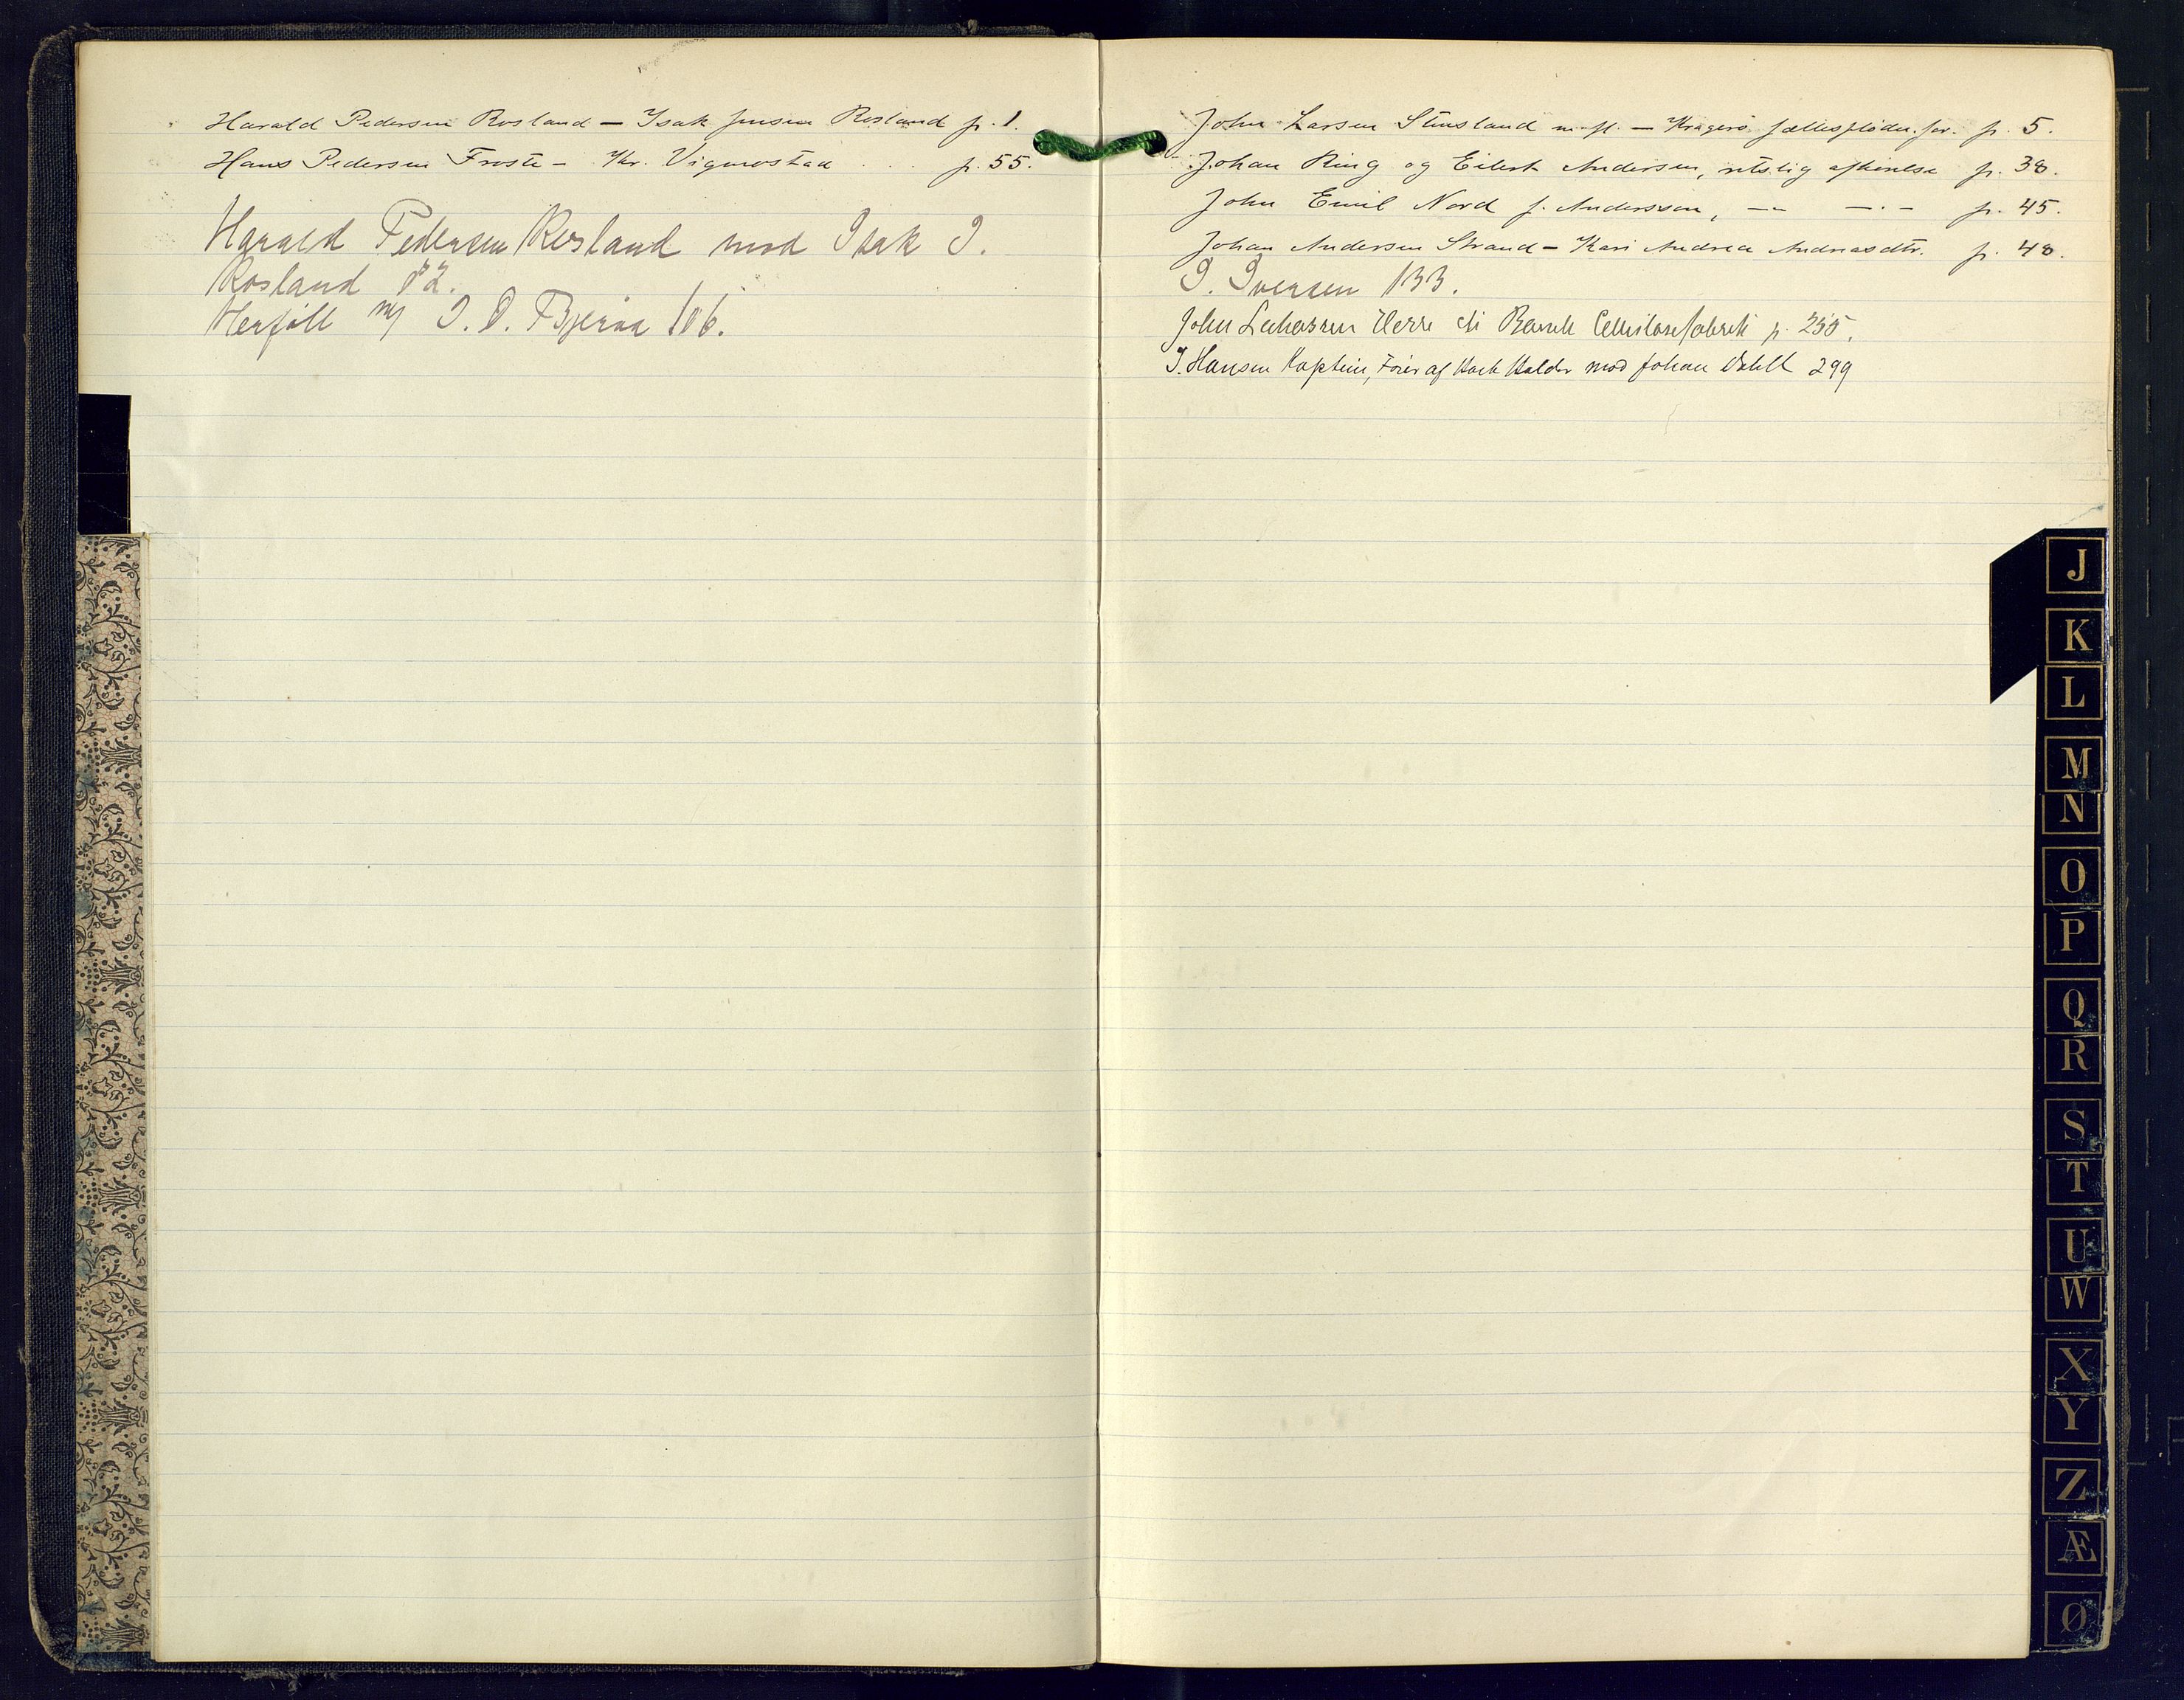 Harald Pedersen Rosland – Isak Jensen Rosland p. 1.
Hans Pedersen Froste – Kr. Vigmostad . . p. 55.
Harald Pedersen Rosland mod Isak I.
Rosland 82.
Herføll m/ I. O. Bjerva 106.
John Larsen Stensland m. fl. – Kragerø fællesfløtn.for. p. 5.
Johan Ring og Eilert Andersen, retslig afhørelse p. 38.
John Emil Nord f. Andersson, –– –·– p. 45.
Johan Andersen Strand – Kari Andrea Andreasdtr. p. 48.
I. Iversen 133.
John Herre Cellulosefabrik p. 255.
J. Hansen Kaptein, Fører af Bark Halder mod Johan Dahll 299
J
K
L
M
N
O
P
Q
R
S
T
U
W
X
Y
Z
Æ
Ø